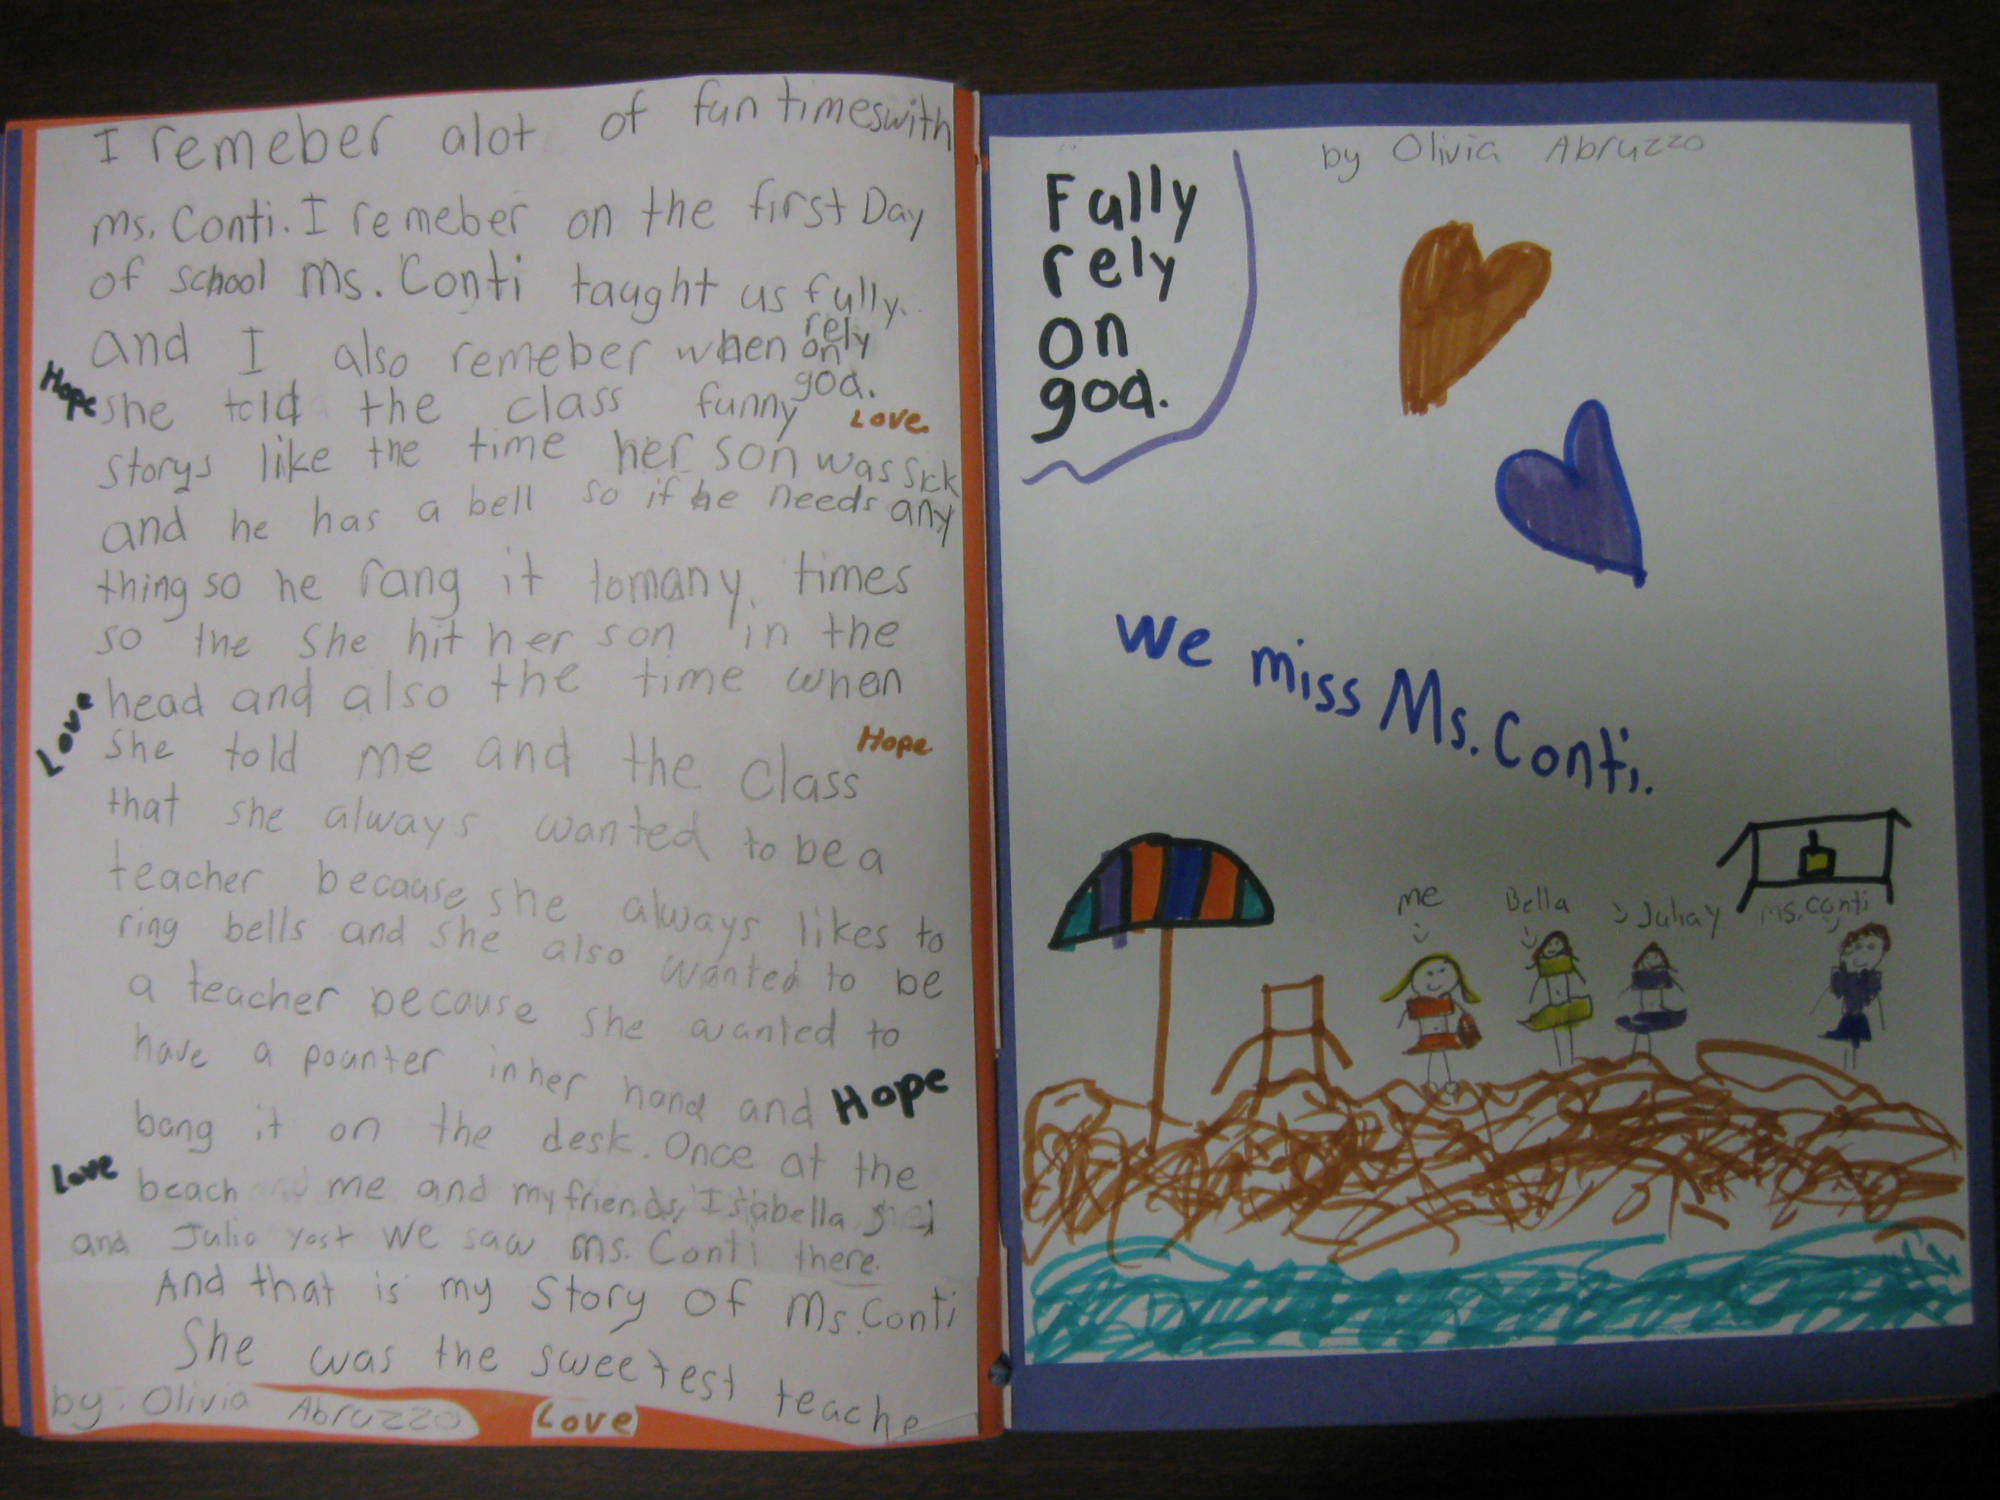 I remeber alot of fun timeswith
ms. Conti. I remeber on the first Day
of school ms. Conti taught us fully
rely
on
god.
and I also remeber when
Hope
she told the class funny
Love
storys like the time her son was sick
and he has a bell so if he needs any
thing so he rang it tomany times
so the she hit her son in the
head and also the time when
Love
she told me and the class
Hope
that she always wanted to be a
teacher because she always likes to
ring bells and she also wanted to be
a teacher because she wanted to
have a pounter in her hand and
Hope
bang it on the desk. Once at the
Love
beach me and my friends, Isabella
and Julia yost we saw ms. Conti there.
And that is my Story of Ms. Conti
She was the sweetest teache
by. Olivia Abruzzo
Love
by Olivia Abruzzo
Fully
rely
on
god.
We miss Ms. Conti.
me
Bella
Juliay
ms. conti